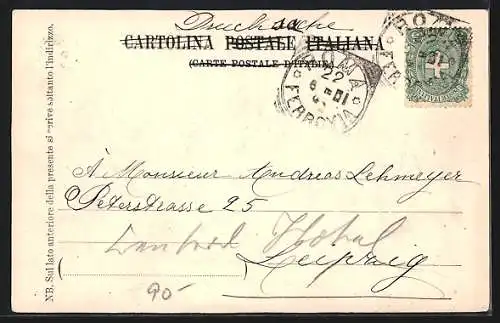 Drucksache
CARTOLINA POSTALE ITALIANA
(CARTE POSTALE D'ITALIE)
ROMA
22
6-01
FERROVIA
ROMA
NB. Sul lato anteriore della presente si scrive soltanto l'indirizzo.
À Monsieur Andreas Lehmeyer
Peterstrasse 25
Hotel
Leipzig
90-